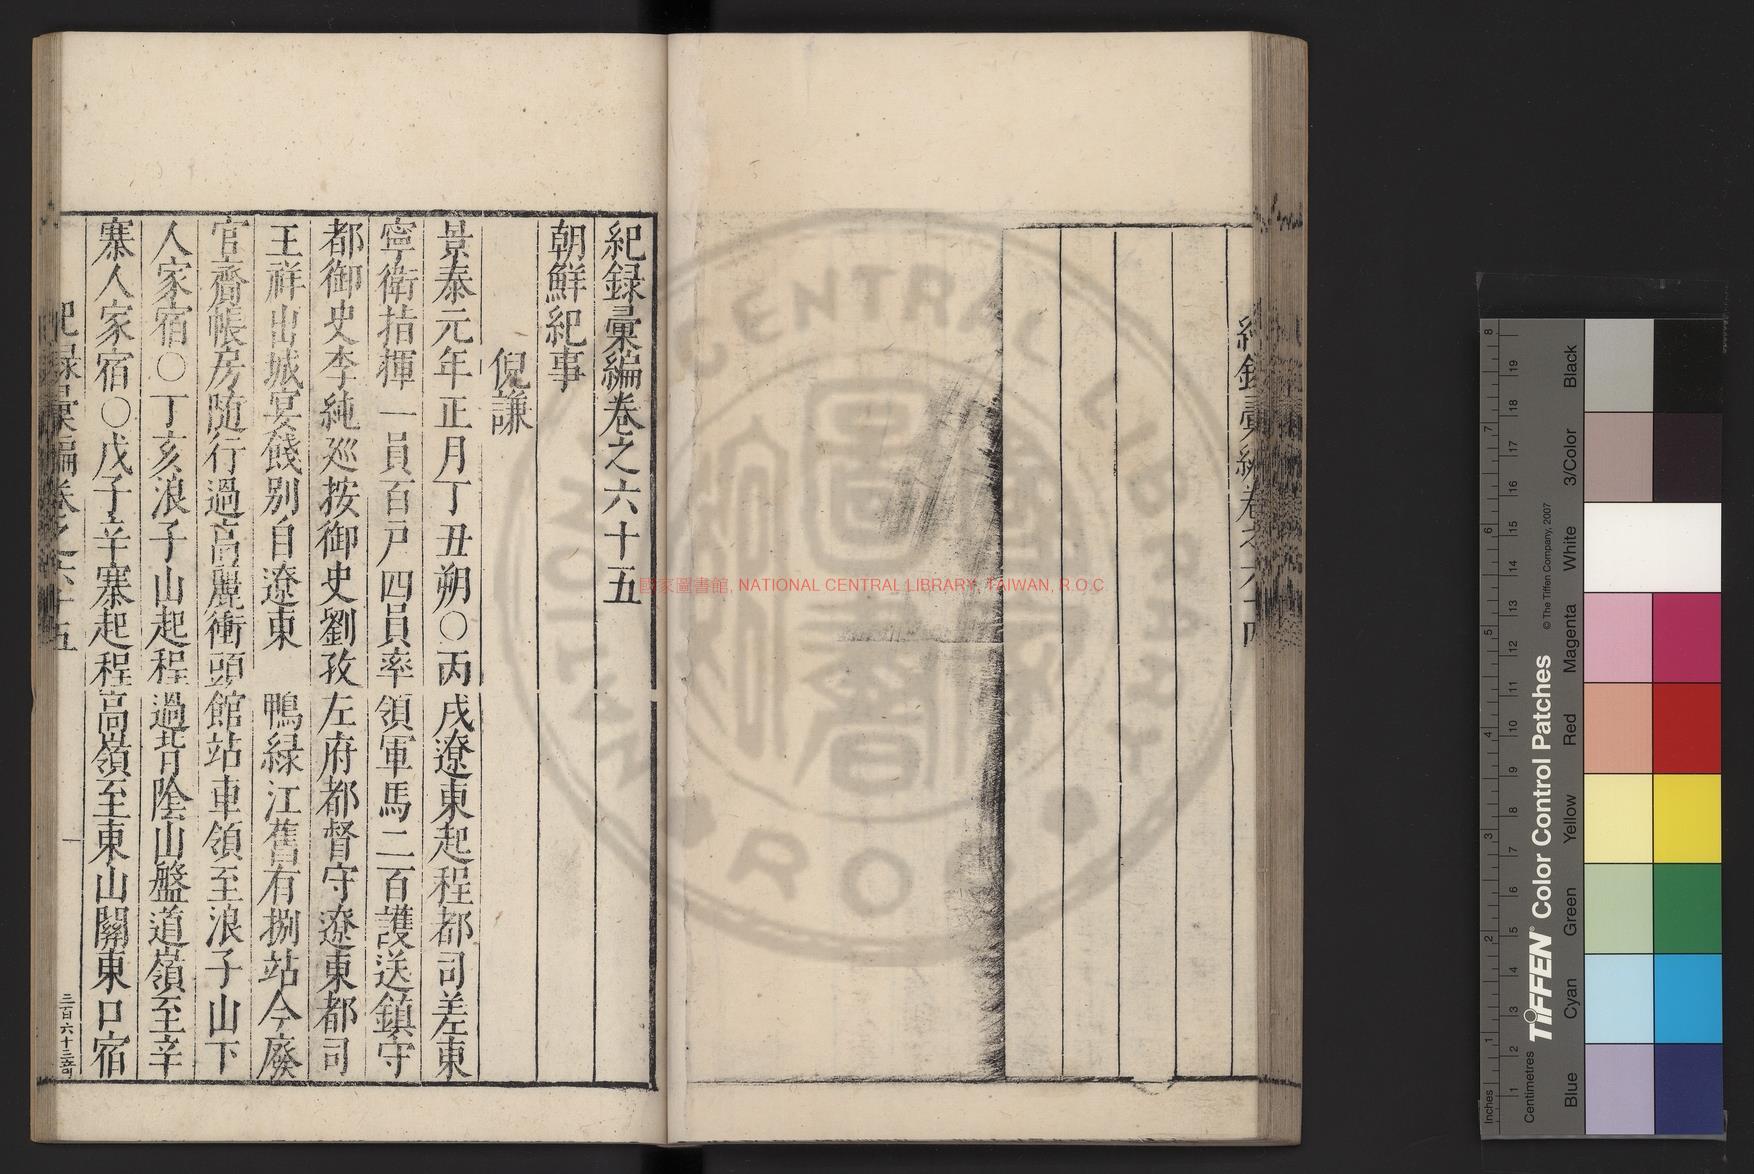 紀錄彙編卷之六十五
朝鮮紀事
倪謙
景泰元年正月丁丑朔○丙戌遼東起程都司差東
寧衛指揮一員百戶四員率領軍馬二百護送鎮守
都御史李純巡按御史劉孜左府都督守遼東都司
王祥出城宴餞別自遼東 鴨綠江舊有捌站今廢
官齎帳房隨行過高麗衝頭館站車領至浪子山下
人家宿○丁亥浪子山起程過背陰山盤道嶺至辛
寨人家宿○戊子辛寨起程高嶺至東山關東口宿
紀錄彙編卷之六十五
一
紀錄彙編卷之六十四
國家圖書館, NATIONAL CENTRAL LIBRARY, TAIWAN, R.O.C
NATIONAL CENTRAL LIBRARY
R.O.C
TIFFEN® Color Control Patches
© The Tiffen Company, 2007
Inches
1 2 3 4 5 6 7 8
Centimetres
1 2 3 4 5 6 7 8 9 10 11 12 13 14 15 16 17 18 19
Blue
Cyan
Green
Yellow
Red
Magenta
White
3/Color
Black